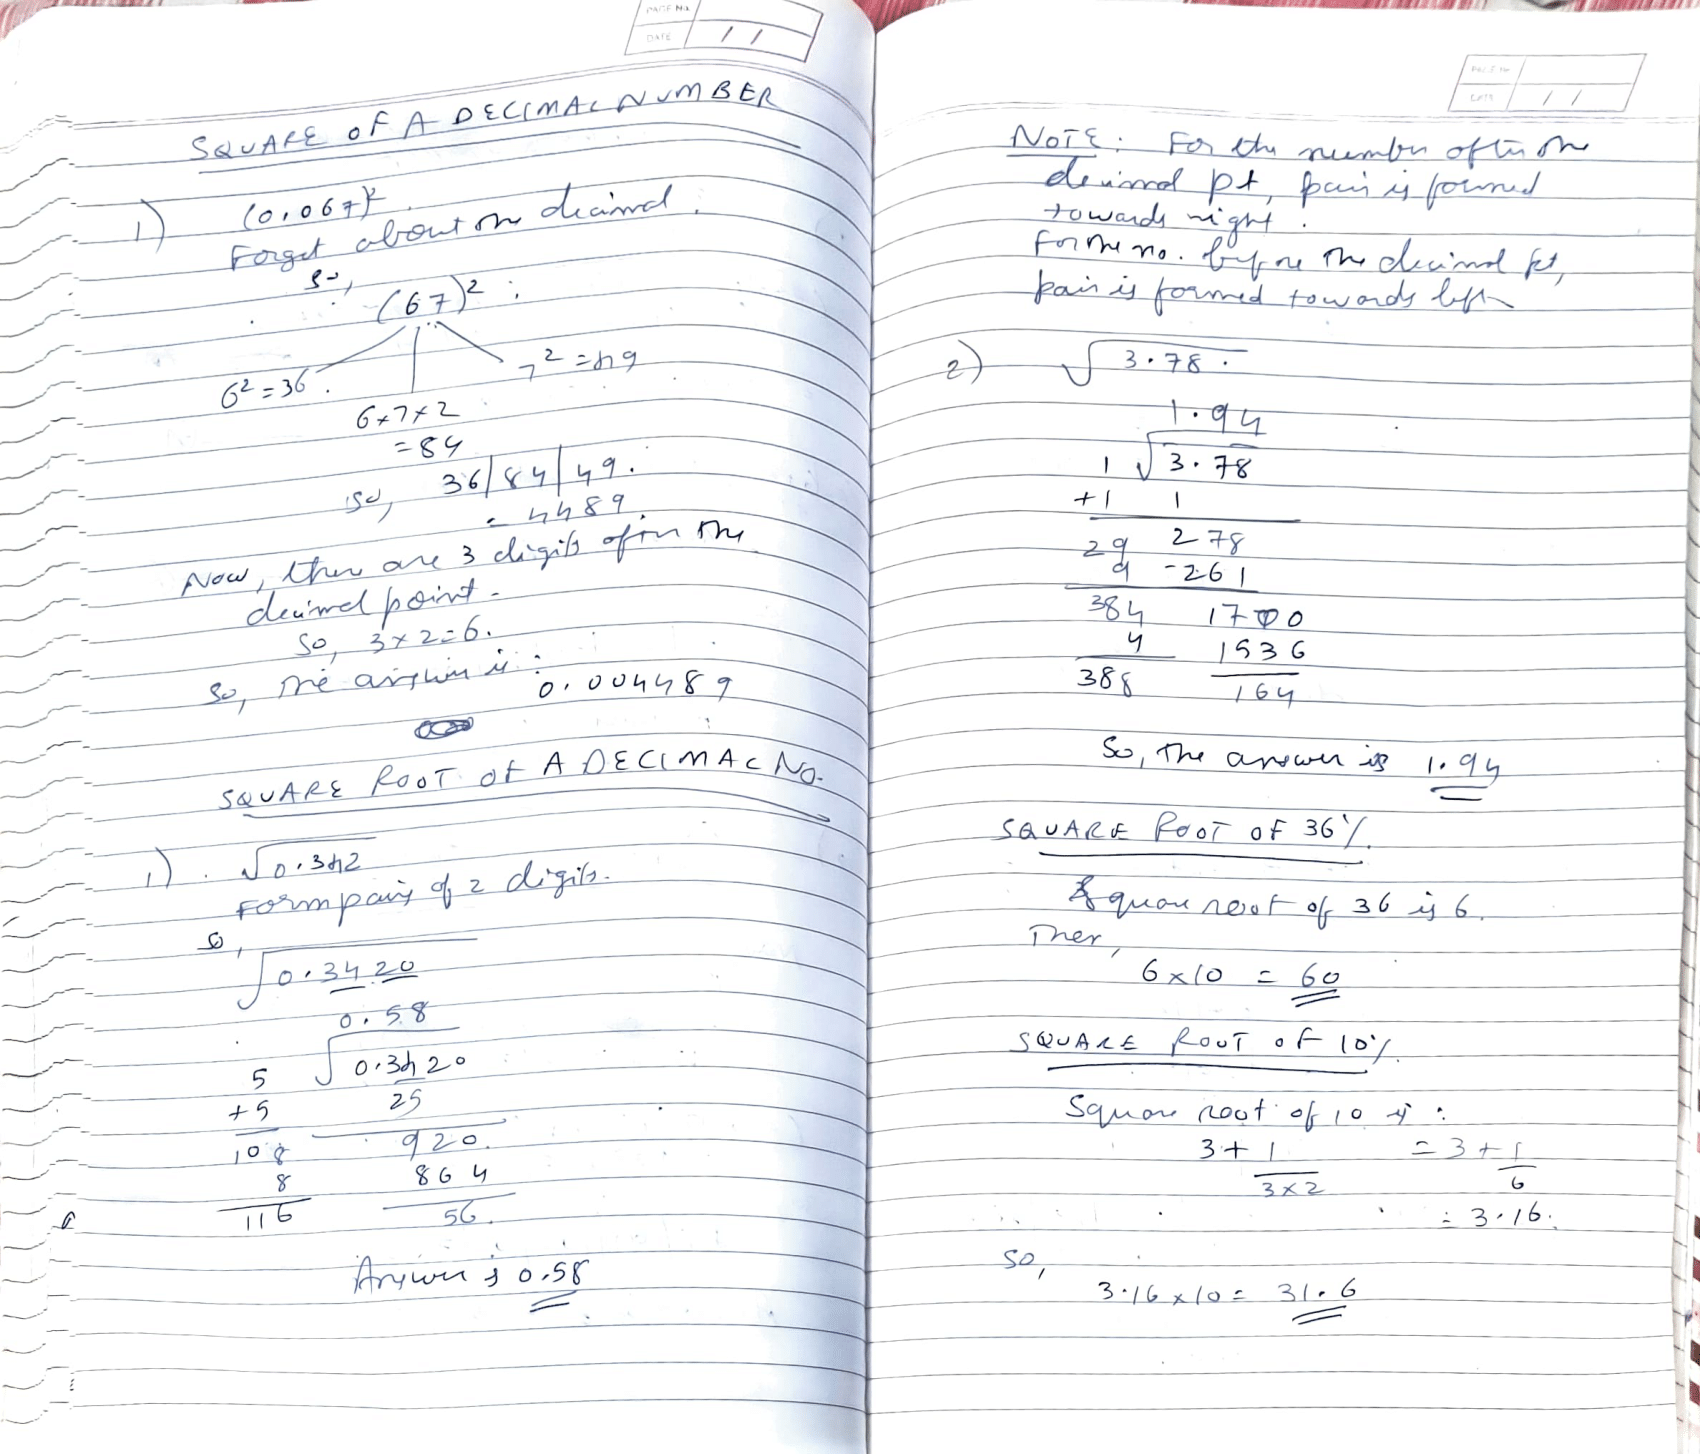 PAGE No.
DATE / /
SQUARE OF A DECIMAL NUMBER
1) (0.067)²
Forget about the decimal.
So,
(67)²
6² = 36. 7² = 49
6×7×2
= 84
So, 36/84/49.
= 4489
Now, there are 3 digits after the
decimal point.
So, 3×2=6.
So, the answer is :
0.004489
SQUARE ROOT OF A DECIMAL NO.
1) √0.342
Form pairs of 2 digits.
So,
√0.34 20
0.58
5 √0.34 20
+5 25
108 920
8 864
116 56
Answer is 0.58
PAGE No
DATE / /
NOTE: For the number after the
decimal pt, pair is formed
towards right.
For the no. before the decimal pt,
pair is formed towards left
2) √3.78
1.94
1 √3.78
+1 1
29 278
9 -261
384 1700
4 1536
388 164
So, the answer is 1.94
SQUARE ROOT OF 36%
Square root of 36 is 6.
Then,
6×10 = 60
SQUARE ROOT OF 10%
Square root of 10 is :
3+1/3×2 = 3+1/6
= 3.16.
So,
3.16×10= 31.6